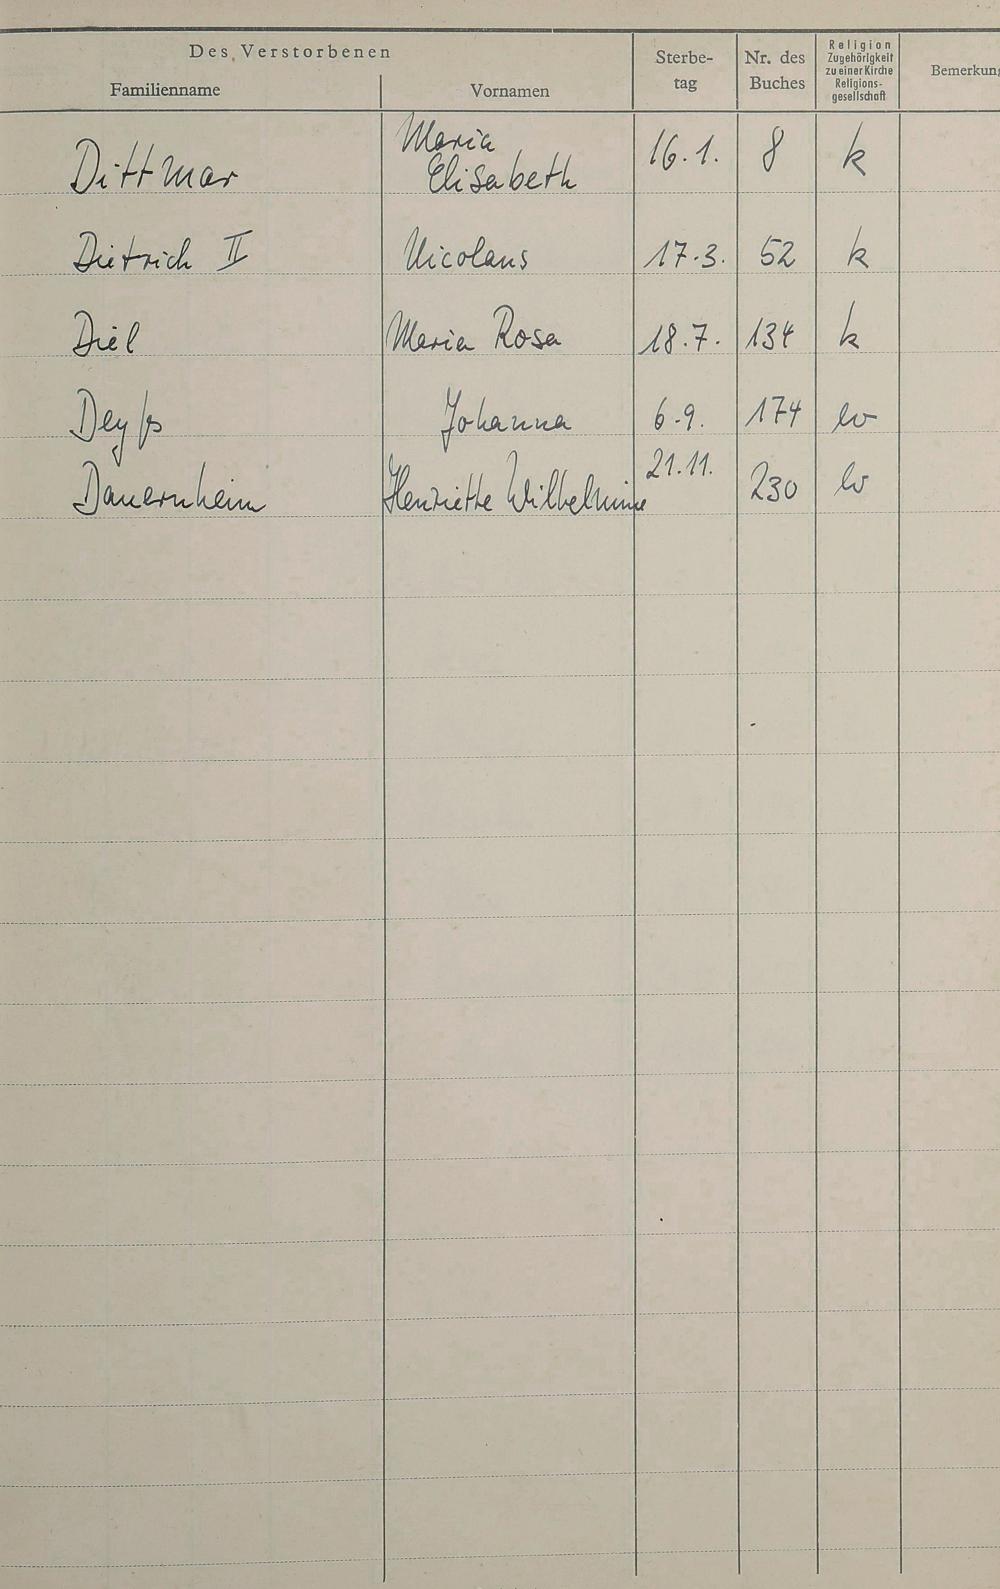 Des Verstorbenen
Familienname Vornamen Sterbe-
tag Nr. des
Buches Religion
Zugehörigkeit
zu einer Kirche
Religions-
gesellschaft Bemerkung
Dittmar Maria
Elisabeth 16.1. 8 k
Dietrich II Nicolaus 17.3. 52 k
Diel Maria Rosa 18.7. 134 k
Deyß Johanna 6.9. 174 ev
Dauernheim Henriette Wilhelmine 21.11. 230 ev